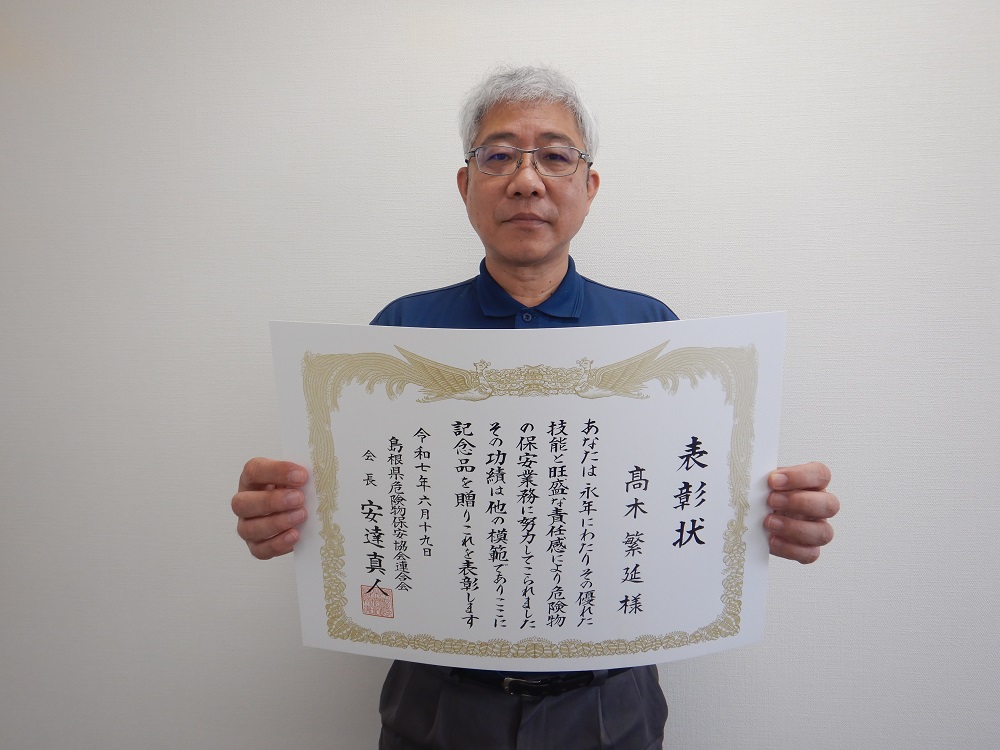 表彰状
髙木繁延様
あなたは永年にわたりその優れた
技能と旺盛な責任感により危険物
の保安業務に努力してこられました
その功績は他の模範でありここに
記念品を贈りこれを表彰します
令和七年六月十九日
島根県危険物保安協会連合会
会長 安達真人